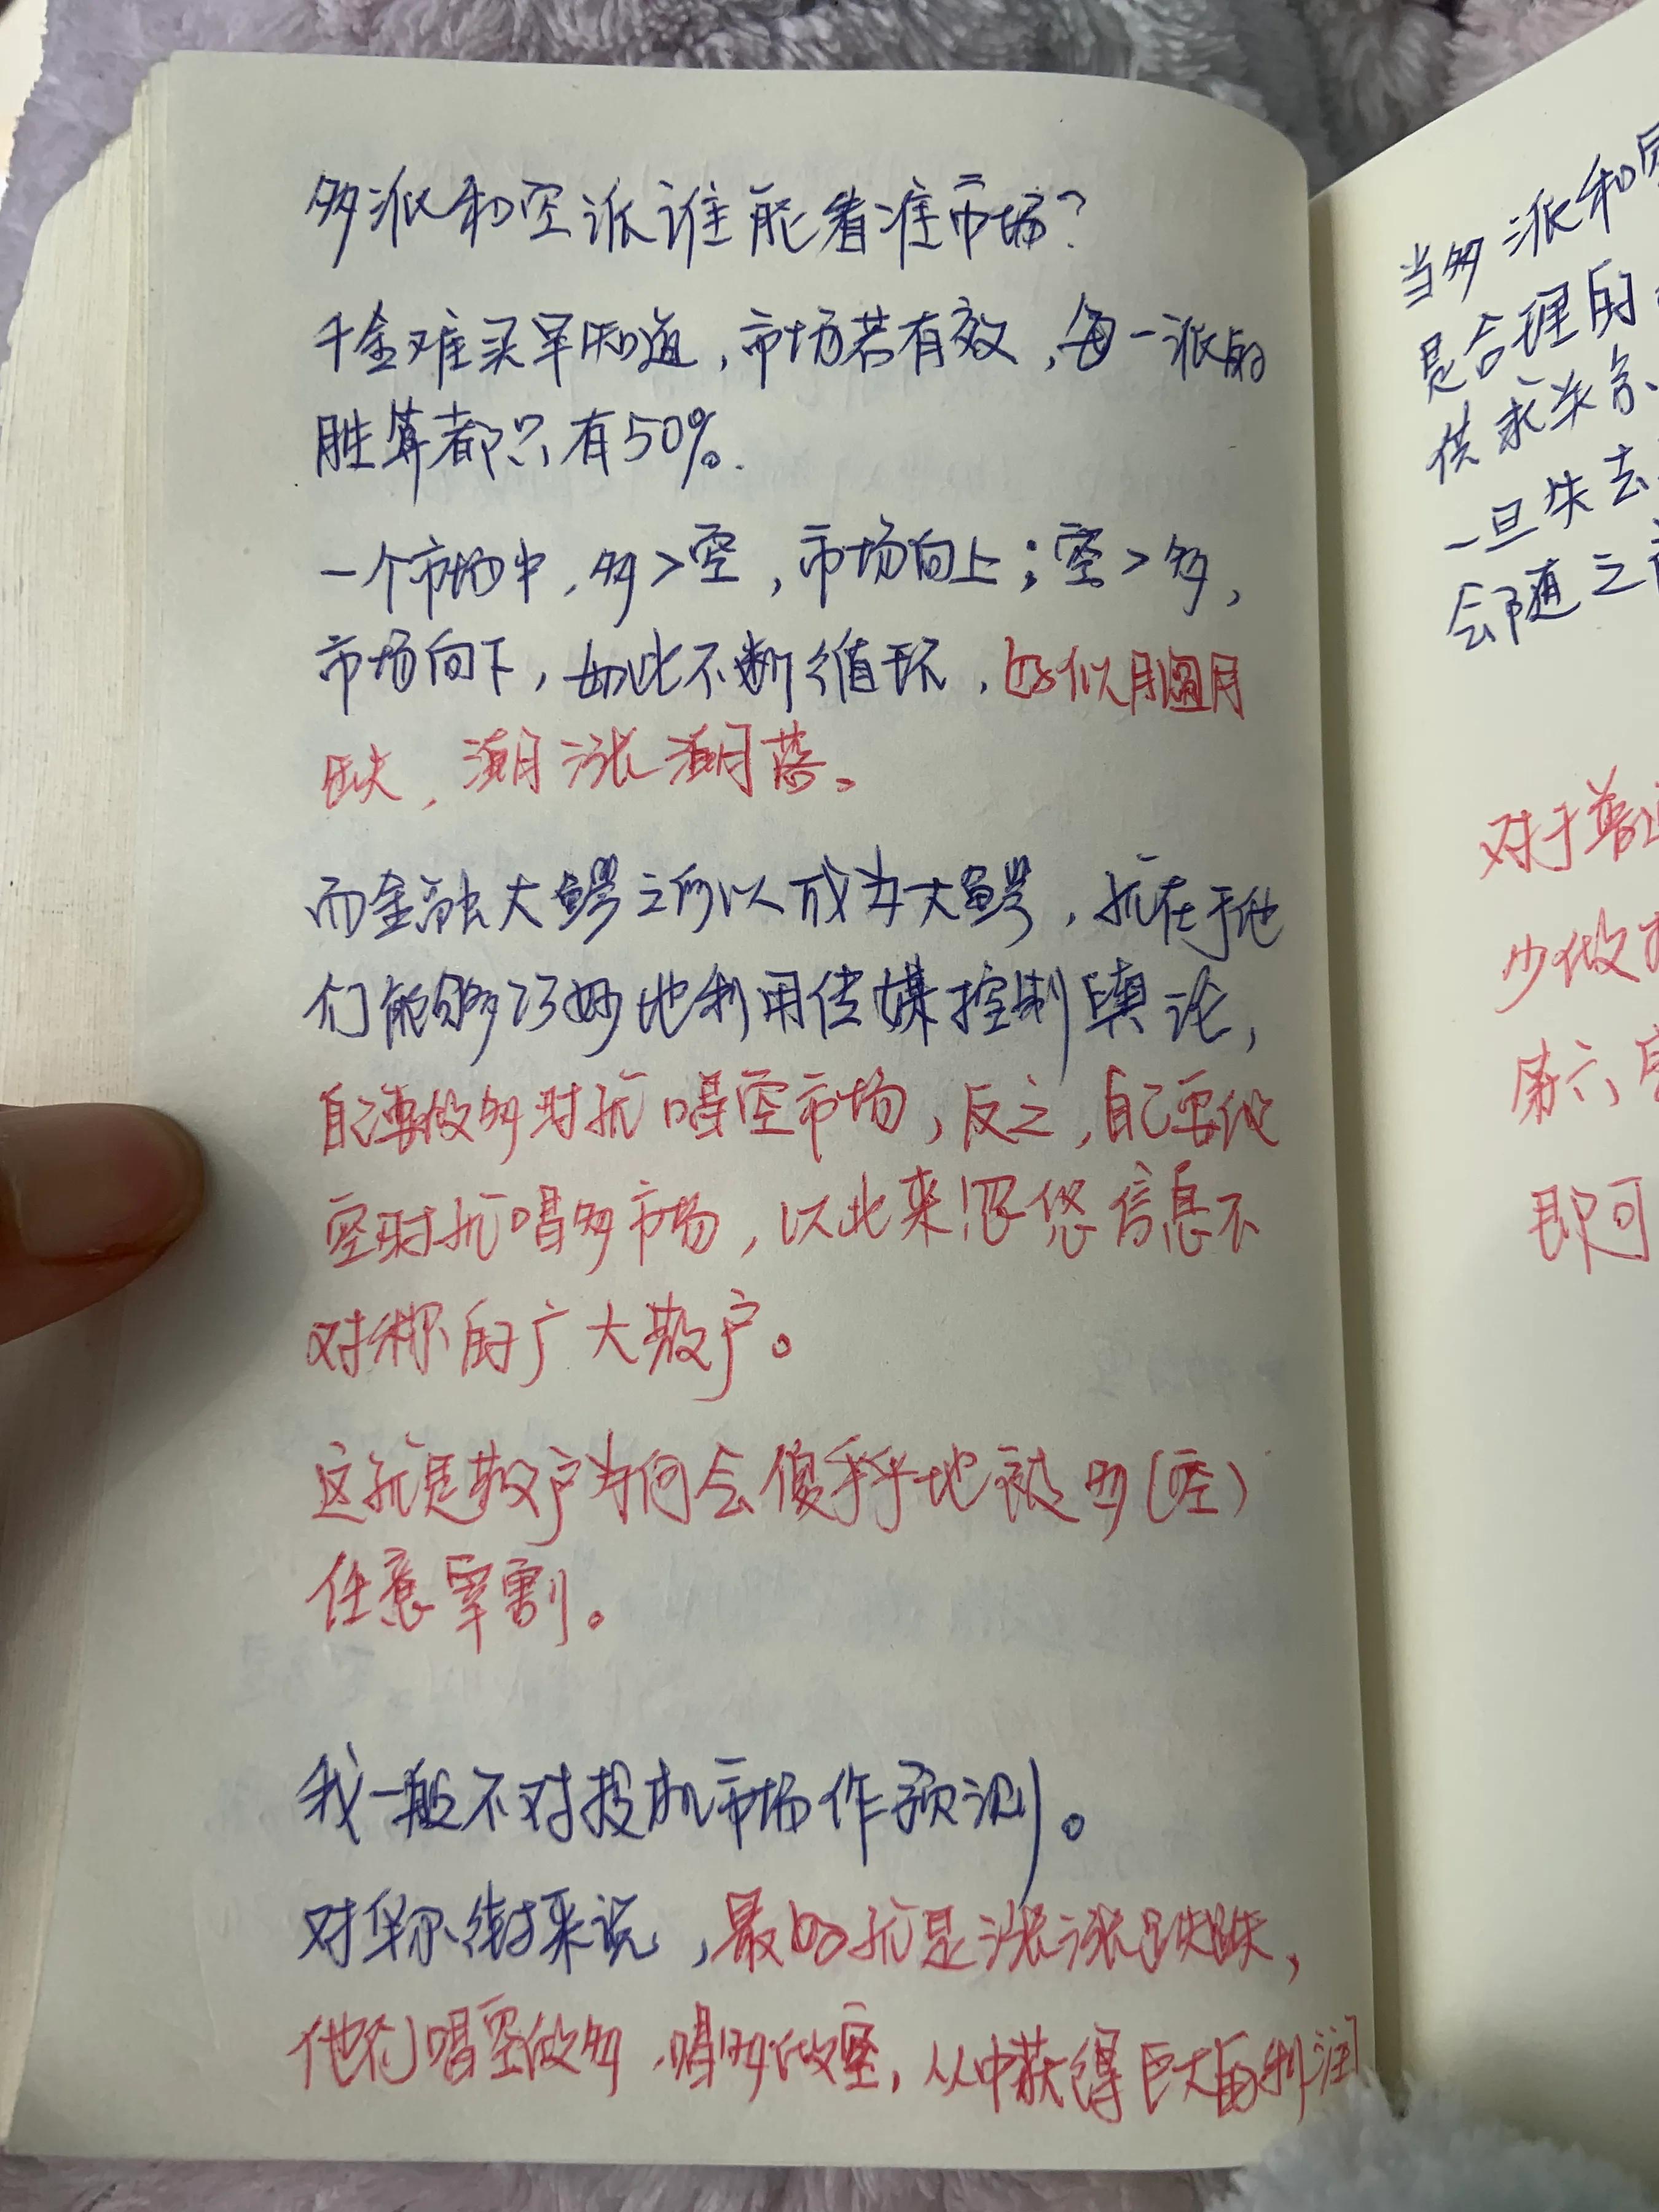 多派和空派谁能看准市场?
千金难买早知道,市场若有效,每一派的
胜算都只有50%。
一个市场中,多>空,市场向上;空>多,
市场向下,如此不断循环,好似月圆月
缺,潮涨潮落。
而金融大鳄之所以成为大鳄,就在于他
们能够巧妙地利用传媒控制舆论,
自己要做多时就唱空市场,反之,自己要做
空时就唱多市场,以此来忽悠信息不
对称的广大散户。
这就是散户为何会傻乎乎地被多(空)
任意宰割。
我一般不对投机市场作预测。
对华尔街来说,最好就是涨涨跌跌,
他们唱空做多,唱多做空,从中获得巨大的利润
当多派和空
是合理的
供求关系
一旦失去
会随之
对于普通
少做
第六
即可